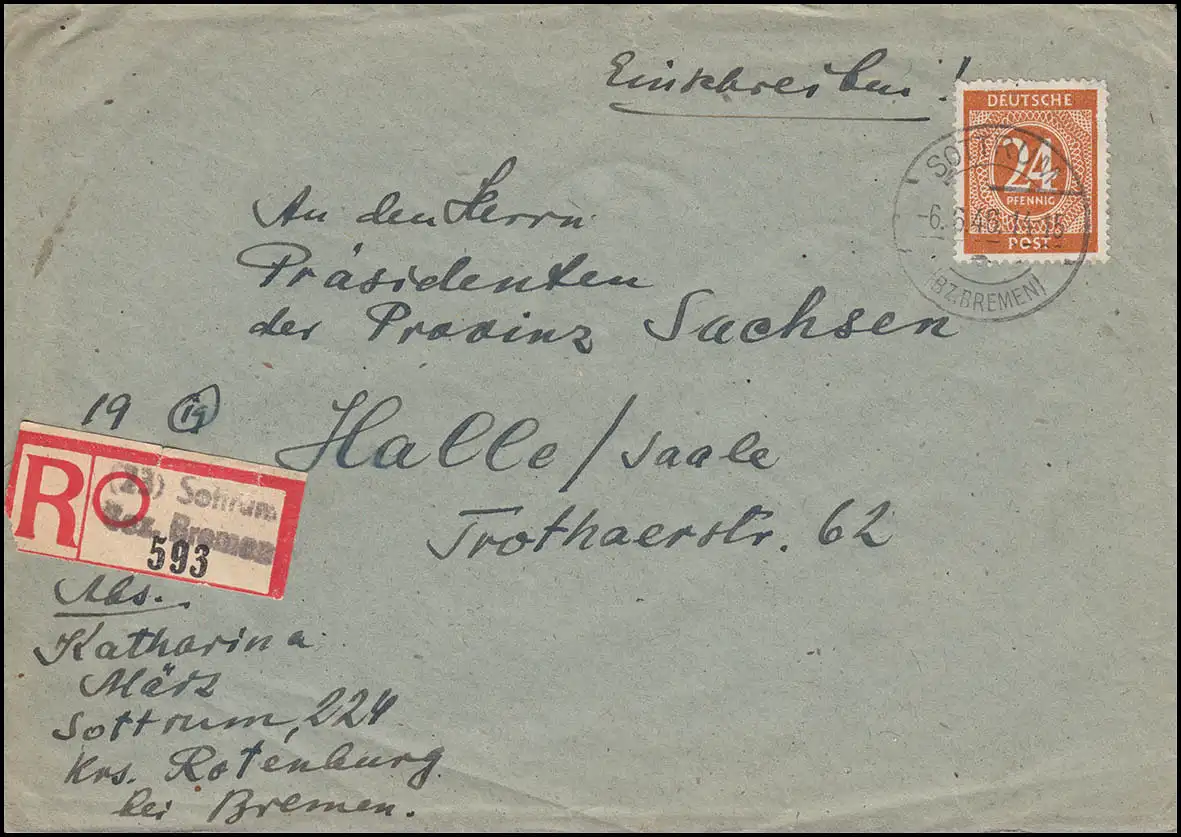 Einschreiben!
DEUTSCHE
24
PFENNIG
POST
SOTTRUM
-6. 6.46.11-15
(BZ.BREMEN)
An den Herrn
Präsidenten
der Provinz Sachsen
19 (19)
Halle/Saale
Trothaerstr. 62
R
(23) Sottrum
Bez. Bremen
593
Abs.
Katharina
März
Sottrum, 224
Krs. Rotenburg
bei Bremen.